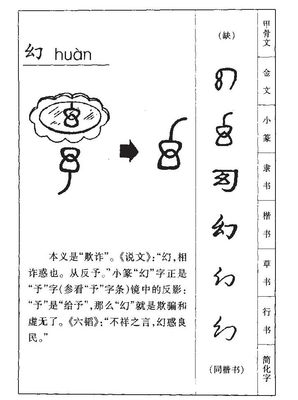 幻 huàn
本义是“欺诈”。《说文》：“幻，相
诈惑也。从反予。”小篆“幻”字正是
“予”字(参看“予”字条)镜中的反影：
“予”是“给予”，那么“幻”就是欺骗和
虚无了。《六韬》：“不祥之言，幻惑良
民。”
(缺) 甲骨文
幻 金文
幻 小篆
幻 隶书
幻 楷书
幻 草书
幻 行书
(同楷书) 简化字